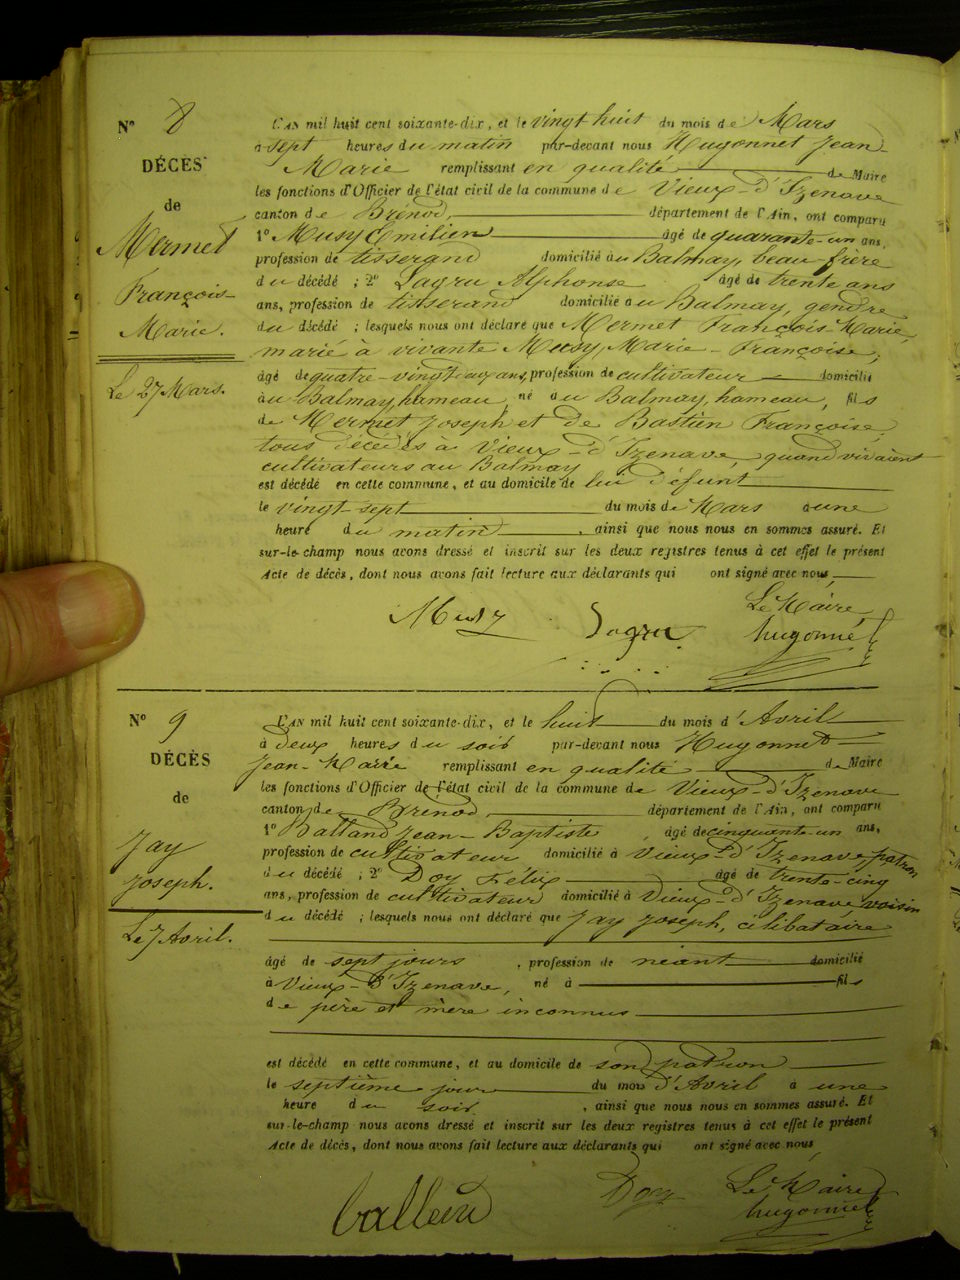 N° 8
DÉCÈS
de
Mermet
François-
Marie.
Le 27 Mars.
L'AN mil huit cent soixante-dix, et le vingt huit du mois de Mars
à sept heures du matin par-devant nous Hugonnet Jean
Marie remplissant en qualité de Maire
les fonctions d'Officier de l'état civil de la commune de Vieux-d'Izenave
canton de Brénod, département de l'Ain, ont comparu
1° Musy Emilien âgé de quarante-un ans,
profession de tisserand domicilié au Balmay, beau-frère
du décédé ; 2° Lagru Alphonse âgé de trente ans
ans, profession de tisserand domicilié au Balmay, gendre
du décédé ; lesquels nous ont déclaré que Mermet François-Marie,
marié à vivante Musy Marie-Françoise,
âgé de quatre-vingt ans, profession de cultivateur domicilié
au Balmay, hameau, né au Balmay, hameau, fils
de Mermet Joseph et de Bastien Françoise,
tous décédés à Vieux-d'Izenave, quand vivaient
cultivateurs au Balmay
est décédé en cette commune, et au domicile de lui défunt
le vingt-sept du mois de Mars à une
heure du matin, ainsi que nous nous en sommes assuré. Et
sur-le-champ nous avons dressé et inscrit sur les deux registres tenus à cet effet le présent
Acte de décès, dont nous avons fait lecture aux déclarants qui ont signé avec nous,
Musy Lagru Le Maire
hugonnet
N° 9
DÉCÈS
de
Jay
Joseph.
Le 7 Avril.
L'AN mil huit cent soixante-dix, et le huit du mois d'Avril
à deux heures du soir par-devant nous Hugonnet
Jean-Marie remplissant en qualité de Maire
les fonctions d'Officier de l'état civil de la commune de Vieux-d'Izenave
canton de Brénod, département de l'Ain, ont comparu
1° Balland Jean-Baptiste, âgé de cinquante-un ans,
profession de cultivateur domicilié à Vieux-d'Izenave, patron
du décédé ; 2° Doy Félix âgé de trente-cinq
ans, profession de cultivateur domicilié à Vieux-d'Izenave, voisin
du décédé ; lesquels nous ont déclaré que Jay Joseph, célibataire
âgé de sept jours, profession de néant domicilié
à Vieux-d'Izenave, né à fils
de père et mère inconnus
est décédé en cette commune, et au domicile de son patron
le septième jour du mois d'Avril à une
heure du soir, ainsi que nous nous en sommes assuré. Et
sur-le-champ nous avons dressé et inscrit sur les deux registres tenus à cet effet le présent
Acte de décès, dont nous avons fait lecture aux déclarants qui ont signé avec nous,
balland Doy Le Maire
hugonnet